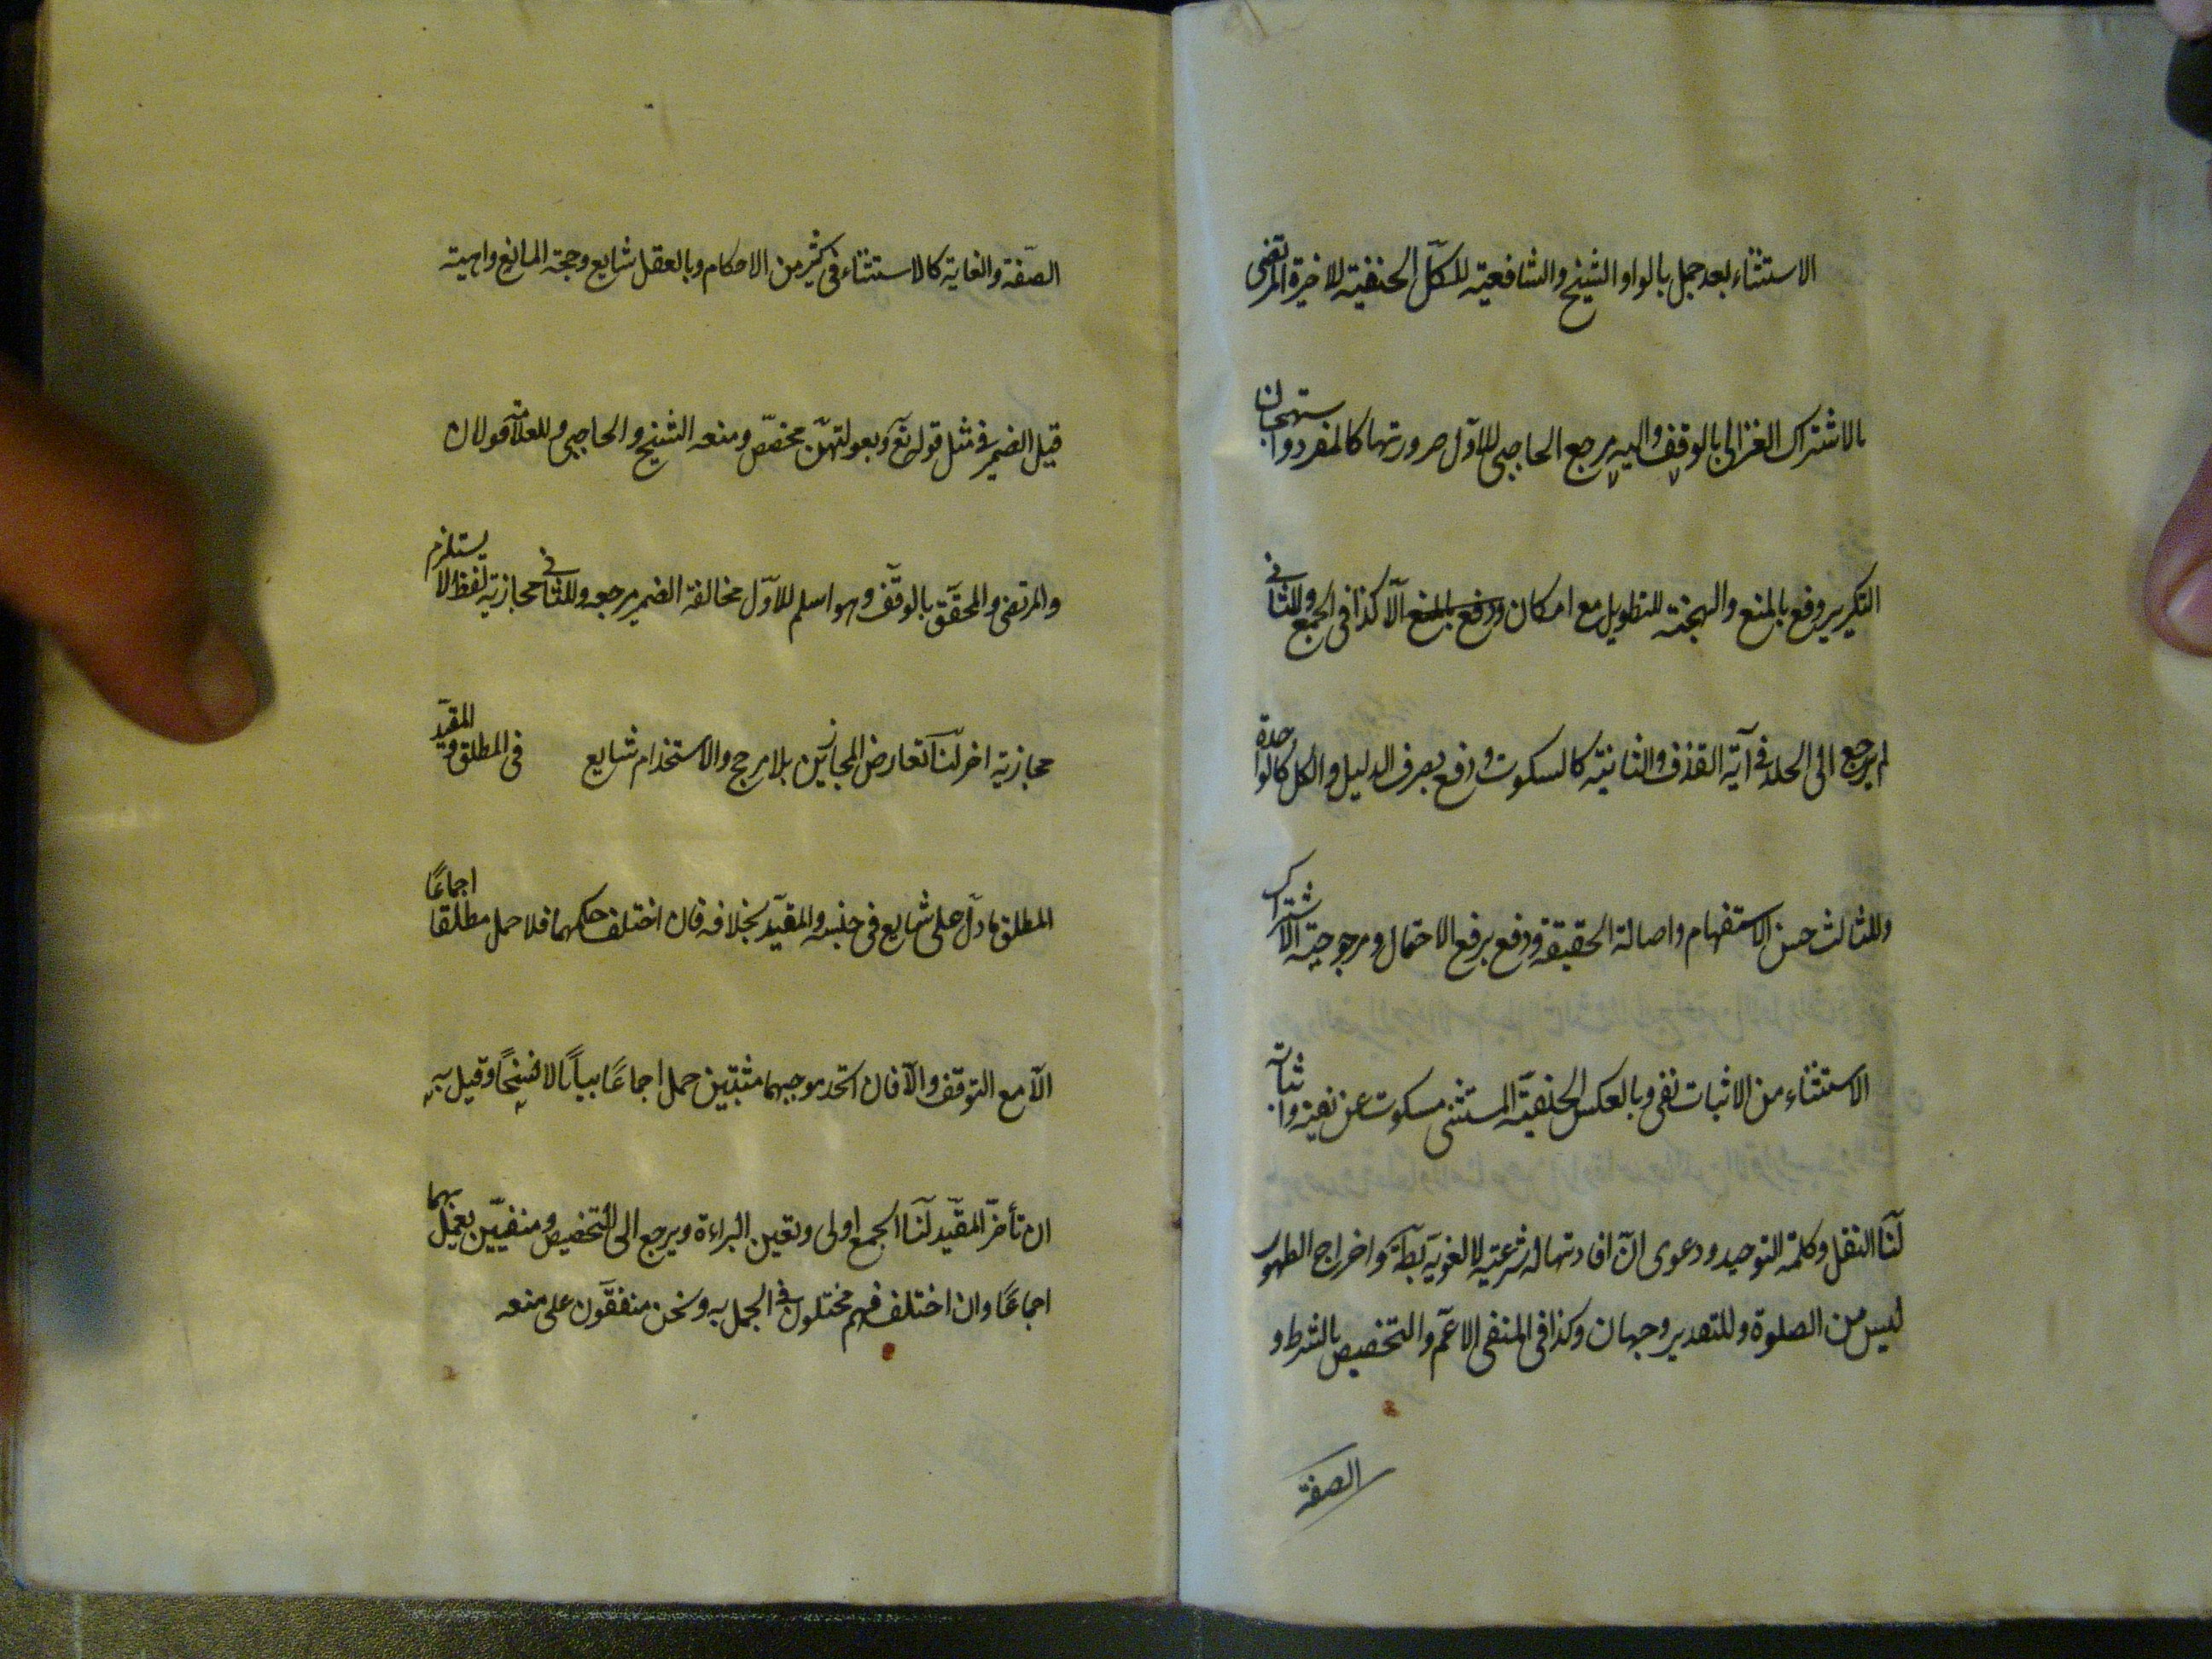 الاستثناء بعد جمل بالواو الشيخ والشافعية للكلّ الحنفية للاخيرة المرتضى
بالاشتراك الغزالى بالوقف واليه يرجع الحاجبى للاوّل صرورتها كالمفرد واستهجان
التكرير ودفع بالمنع والهجنة للتطويل مع امكان ودفع بالمنع الّا كذا فى الجميع وللثانى
لم يرجع الى الجلد فى آية القذف والثانية كالسكوت ودفع بصرف الدليل والكل كالواحدة
وللثالث حسن الاستفهام واصالة الحقيقة ودفع برفع الاحتمال ومرجوحية الاشتراك
الاستثناء من الاثبات نفى وبالعكس الحنفيّة المستثنى مسكوت عن نفيه واثباته
لنا النقل وكلمة التوحيد ودعوى انّ افادتها له شرعية لا لغوية بطة واخراج الطهور
ليس من الصلوة وللتصدير وجهان وكذا فى المنفى الاعمّ والتخصيص بالشرط و
الصفة
الصّفة والغاية كالاستثناء فى كثير من الاحكام وبالعقل شايع وحجة المانع واهية
قيل الضمير فى مثل قوله تع وبعولتهنّ مخصّص ومنعه الشيخ والحاجبى وللعلّامة قولان
والمرتضى والمحقّق بالوقف وهو اسلم للاوّل مخالفة الضمير مرجعه وللثانى مجازية لفظ لا يستلزم
مجازية اخر لنا تعارض المجازين بلا مرجح والاستخدام شايع فى المطلق والمقيّد
المطلق ما دلّ على شايع فى جنسه والمقيّد بخلافه فان اختلف حكمهما فلا حمل مطلقا اجماعًا
الّا مع التوقف والّا فان اتحد موجبهما مثبتين حمل اجماعًا بيانًا لا نسخًا وقيل به
ان تأخّر المقيّد لنا الجمع اولى وتعين البراءة ويرجع الى التخصيص ومنفيّين يعمل بهما
اجماعًا وان اختلف فهم مختلفون فى الحمل به ونحن متفقون على منعه